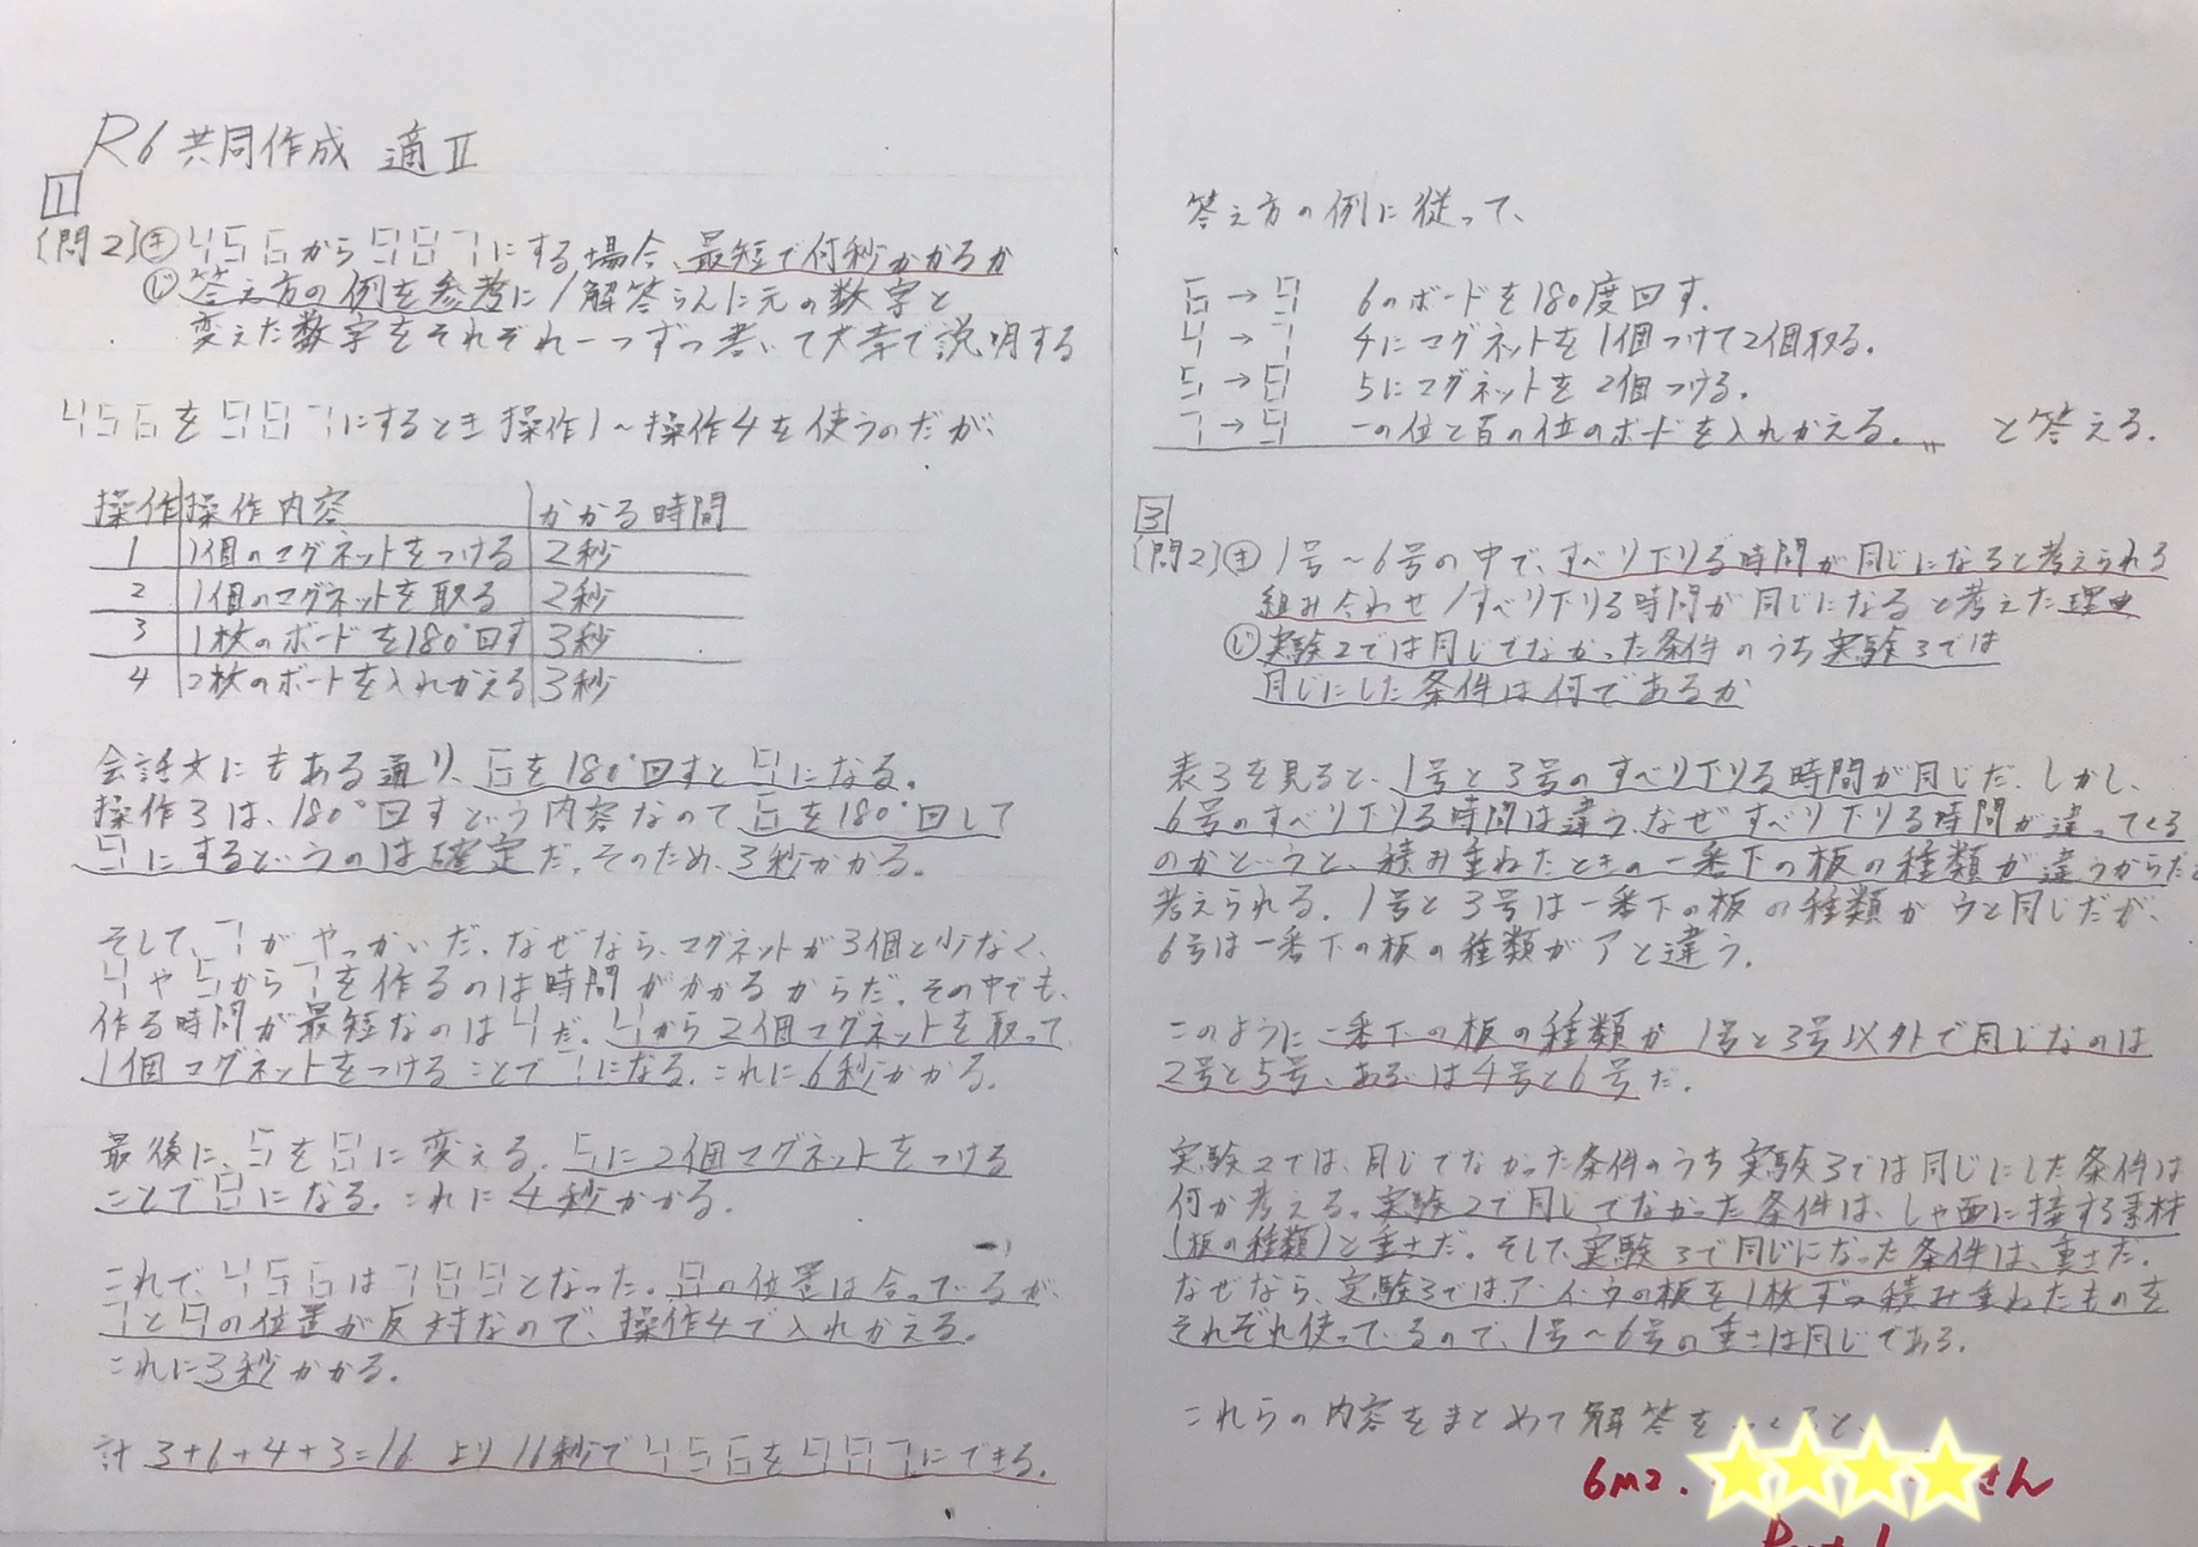 R6 共同作成 適Ⅱ
1
〔問2〕㋖ 456から987にする場合、最短で何秒かかるか
㋛ 答え方の例を参考に/解答らんに元の数字と
変えた数字をそれぞれ一つずつ書いて文章で説明する
456を987にするとき操作1〜操作4を使うのだが、
操作 操作内容 かかる時間
1 1個のマグネットをつける 2秒
2 1個のマグネットを取る 2秒
3 1枚のボードを180°回す 3秒
4 2枚のボートを入れかえる 3秒
会話文にもある通り、6を180°回すと9になる。
操作3は、180°回すという内容なので6を180°回して
9にするというのは確定だ。そのため、3秒かかる。
そして、7がやっかいだ。なぜなら、マグネットが3個と少なく、
4や5から7を作るのは時間がかかるからだ。その中でも、
作る時間が最短なのは4だ。4から2個マグネットを取って
1個マグネットをつけることで7になる。これに6秒かかる。
最後に、5を8に変える。5に2個マグネットをつける
ことで8になる。これに4秒かかる。
これで、456は789となった。8の位置は合っているが、
7と9の位置が反対なので、操作4で入れかえる。
これに3秒かかる。
計 3+6+4+3=16 より16秒で456を987にできる。
答え方の例に従って、
6→9 6のボードを180度回す.
4→7 4にマグネットを1個つけて2個取る.
5→8 5にマグネットを2個つける.
7→9 一の位と百の位のボードを入れかえる. と答える.
3
〔問2〕㋖ 1号〜6号の中で、すべり下りる時間が同じになると考えられる
組み合わせ/すべり下りる時間が同じになると考えた理由
㋛ 実験2では同じでなかった条件のうち実験3では
同じにした条件は何であるか
表3を見ると、1号と3号のすべり下りる時間が同じだ.しかし、
6号のすべり下りる時間は違う.なぜすべり下りる時間が違ってくる
のかというと、積み重ねたときの一番下の板の種類が違うからだと
考えられる.1号と3号は一番下の板の種類がウと同じだが、
6号は一番下の板の種類がアと違う.
このように一番下の板の種類が1号と3号以外で同じなのは
2号と5号、あるいは4号と6号だ.
実験2では、同じでなかった条件のうち実験3では同じにした条件は
何か考える。実験2で同じでなかった条件は、しゃ面に接する素材
(板の種類)と重さだ。そして、実験3で同じになった条件は、重さだ.
なぜなら、実験3ではア・イ・ウの板を1枚ずつ積み重ねたものを
それぞれ使っているので、1号〜6号の重さは同じである.
これらの内容をまとめて解答を
6M2. さん